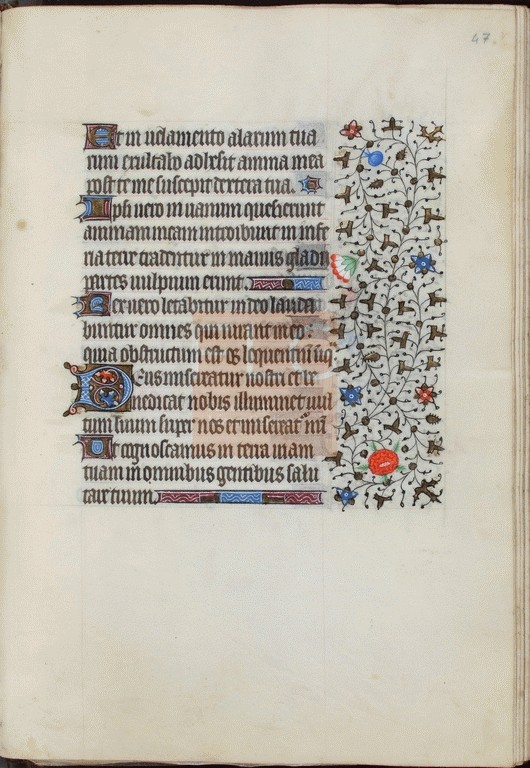 47.
Et in velamento alarum tua
rum exultabo adhesit anima mea
post te me suscepit dextera tua.
Ipsi vero in vanum quesierunt
animam meam introibunt in infe
riora terre tradentur in manus gladii
partes vulpium erunt.
Rex vero letabitur in deo lauda
buntur omnes qui iurant in eo
quia obstructum est os loquentium iniq̄
Deus misereatur nostri et be
nedicat nobis illuminet vul
tum suum super nos et misereat̄ nr̄i
Ut cognoscamus in terra viam
tuam in omnibus gentibus salu
tare tuum.